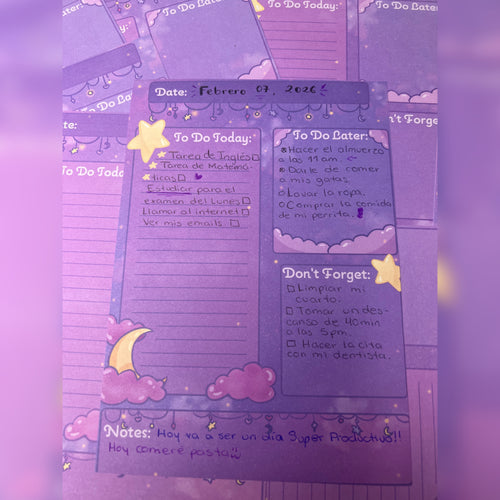 To Do Today:
To Do Later:
Date: Febrero 07, 2026
To Do Today:
Tarea de Inglés
Tarea de Matemá-
ticas
Estudiar para el
examen del Lunes
Llamar al internet
Ver mis emails.
To Do Later:
Hacer el almuerzo
a las 11am.
Darle de comer
a mis gatas.
Lavar la ropa.
Comprar la comida
de mi perrita.
Don't Forget:
Limpiar mi
cuarto.
Tomar un des-
canso de 40min
a las 5pm.
Hacer la cita
con mi dentista.
Notes: Hoy va a ser un dia Super Productivo!!
Hoy comeré pasta